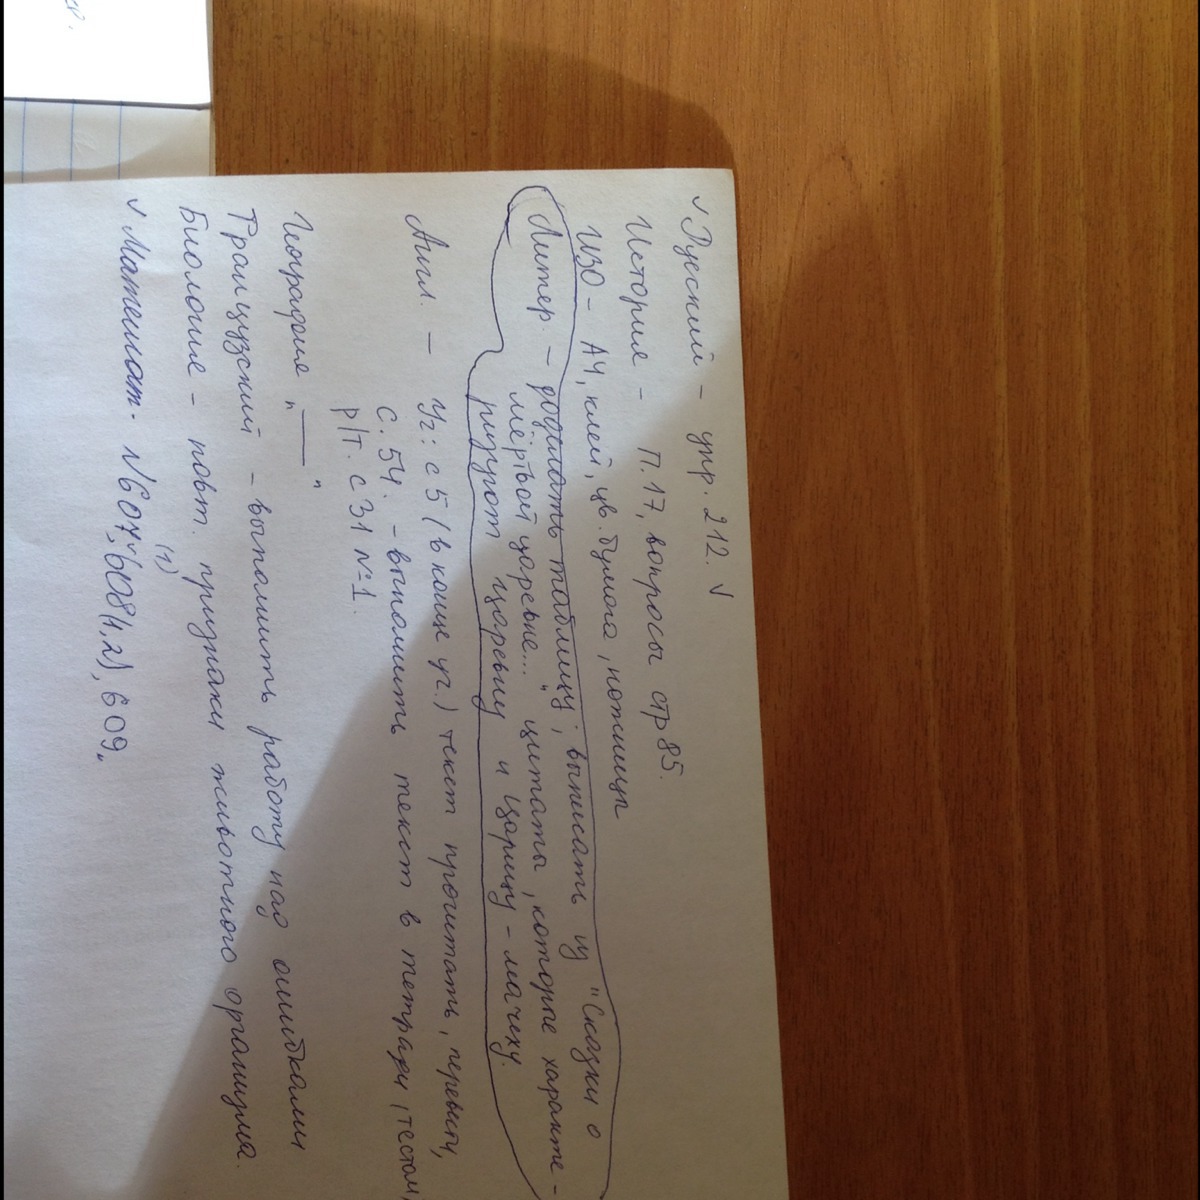 ✓ Русский - упр. 212. ✓
История - п. 17, вопросы стр 85.
ИЗО - А4, клей, цв. бумага, ножницы
Литер. - доделать таблицу; выписать из "Сказки о
мёртвой царевне..." цитаты, которые характе-
ризуют царевну и царицу - мачеху.
Англ. - Уч: с 5 (в конце уч.) текст прочитать, перевести,
с. 54. - выполнить текст в тетради (тестом,
р/т. с 31 №1.
География "——"
Французский - выполнить работу над ошибками
Биология - повт. признаки животного организма.
(1)
✓ Математ. №607, 608(1,2), 609.